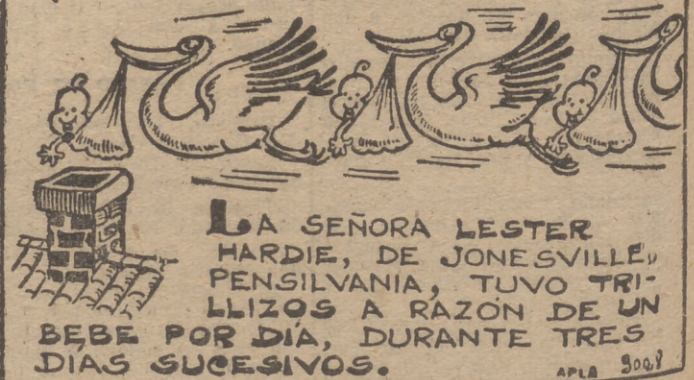 LA SEÑORA LESTER
HARDIE, DE JONESVILLE,
PENSILVANIA, TUVO TRI-
LLIZOS A RAZÓN DE UN
BEBE POR DÍA, DURANTE TRES
DÍAS SUCESIVOS.
APLA